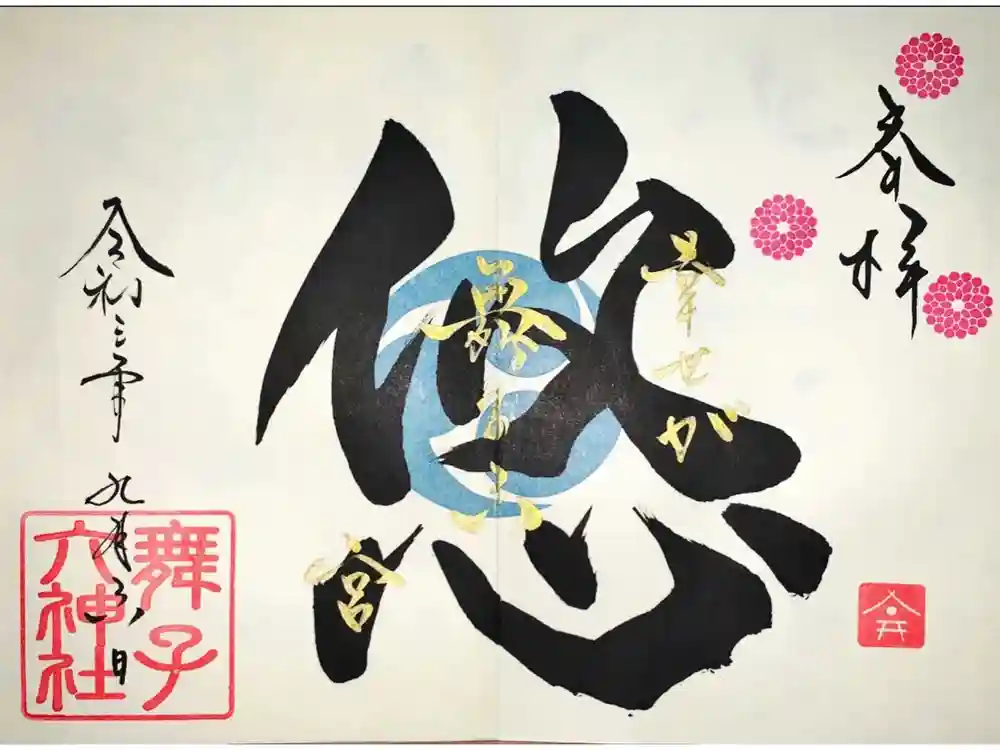 奉拝
悠
幸世が
集まる
六
宮
令和三年 九月三日
舞子
六神社